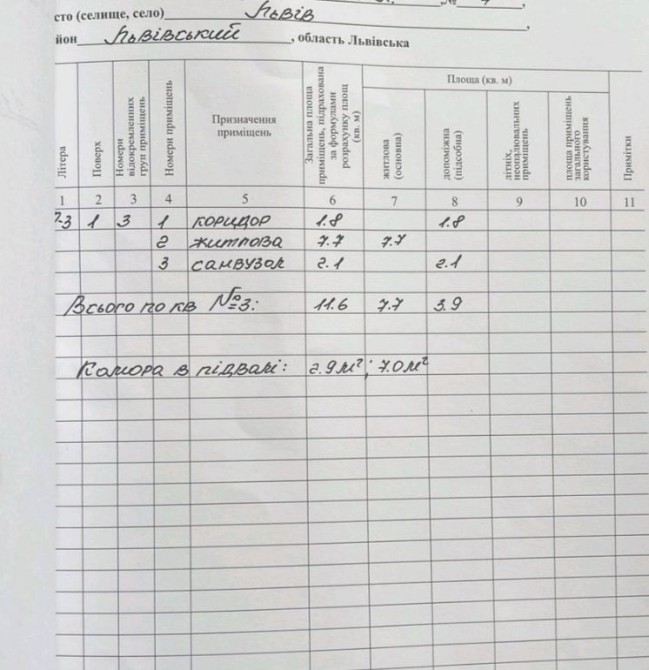 сто (селище, село) Львів,
йон Львівський, область Львівська
Літера
Поверх
Номери відокремленних груп приміщень
Номери приміщень
Призначення приміщень
Загальна площа приміщень, підрахована за формулами розрахунку площ (кв. м)
Площа (кв. м)
житлова (основна)
допоміжна (підсобна)
літніх, неопалювальних приміщень
площа приміщень загального користування
Примітки
1 2 3 4 5 6 7 8 9 10 11
-3 1 3 1 коридор 1.8 1.8
2 житлова 7.7 7.7
3 санвузол 2.1 2.1
Всього по кв №3: 11.6 7.7 3.9
Комора в підвалі: 2.9 м²; 7.0 м²